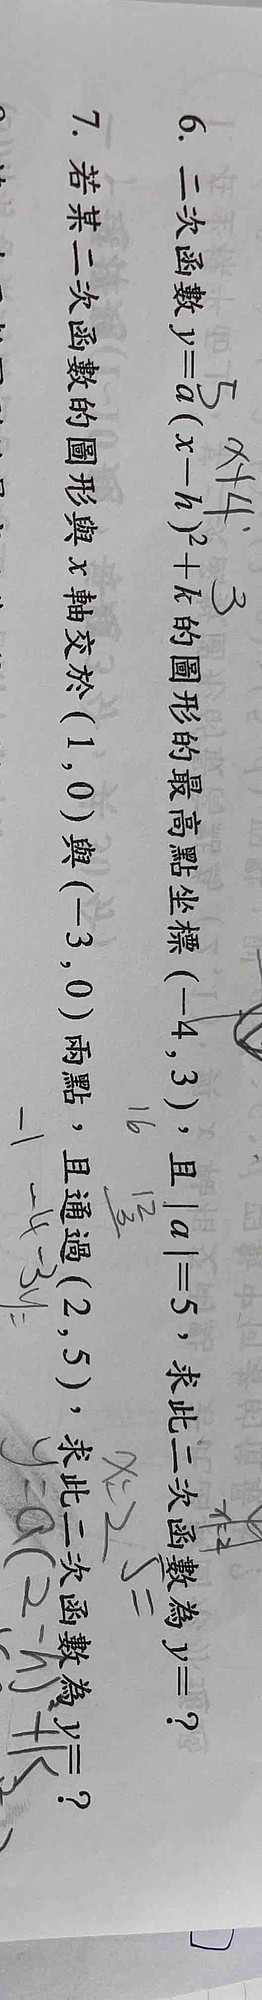 6. 二次函數y=a(x-h)²+k的圖形的最高點坐標(-4,3),且|a|=5,求此二次函數為y=?
5 x+4 3
16
12
x=2
5=
7. 若某二次函數的圖形與x軸交於(1,0)與(-3,0)兩點,且通過(2,5),求此二次函數為y=?
-1
-4-3y=
y=a(2-h)²+k